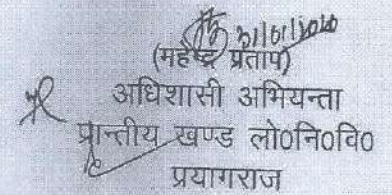 31/01/2020
(महेन्द्र प्रताप)
अधिशासी अभियन्ता
प्रान्तीय खण्ड लो०नि०वि०
प्रयागराज